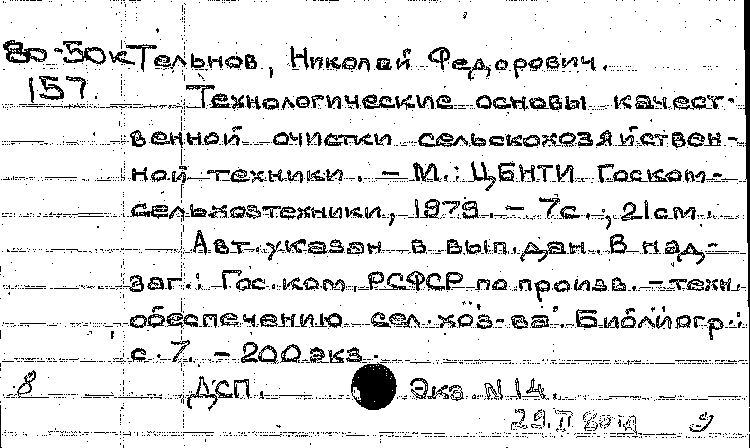 80-50к Тельнов, Николай Федорович.
157. Технологические основы качест-
венной очистки сельскохозяйствен-
ной техники. - М.: ЦБНТИ Госком-
сельхозтехники, 1979. - 7с.; 21см.
Авт. указан в вып. дан. В над-
заг.: Гос. ком. РСФСР по произв.-техн.
обеспечению сел. хоз-ва. Библиогр.:
с. 7. - 200 экз.
8 ДСП. Экз. N 14.
29.II 80